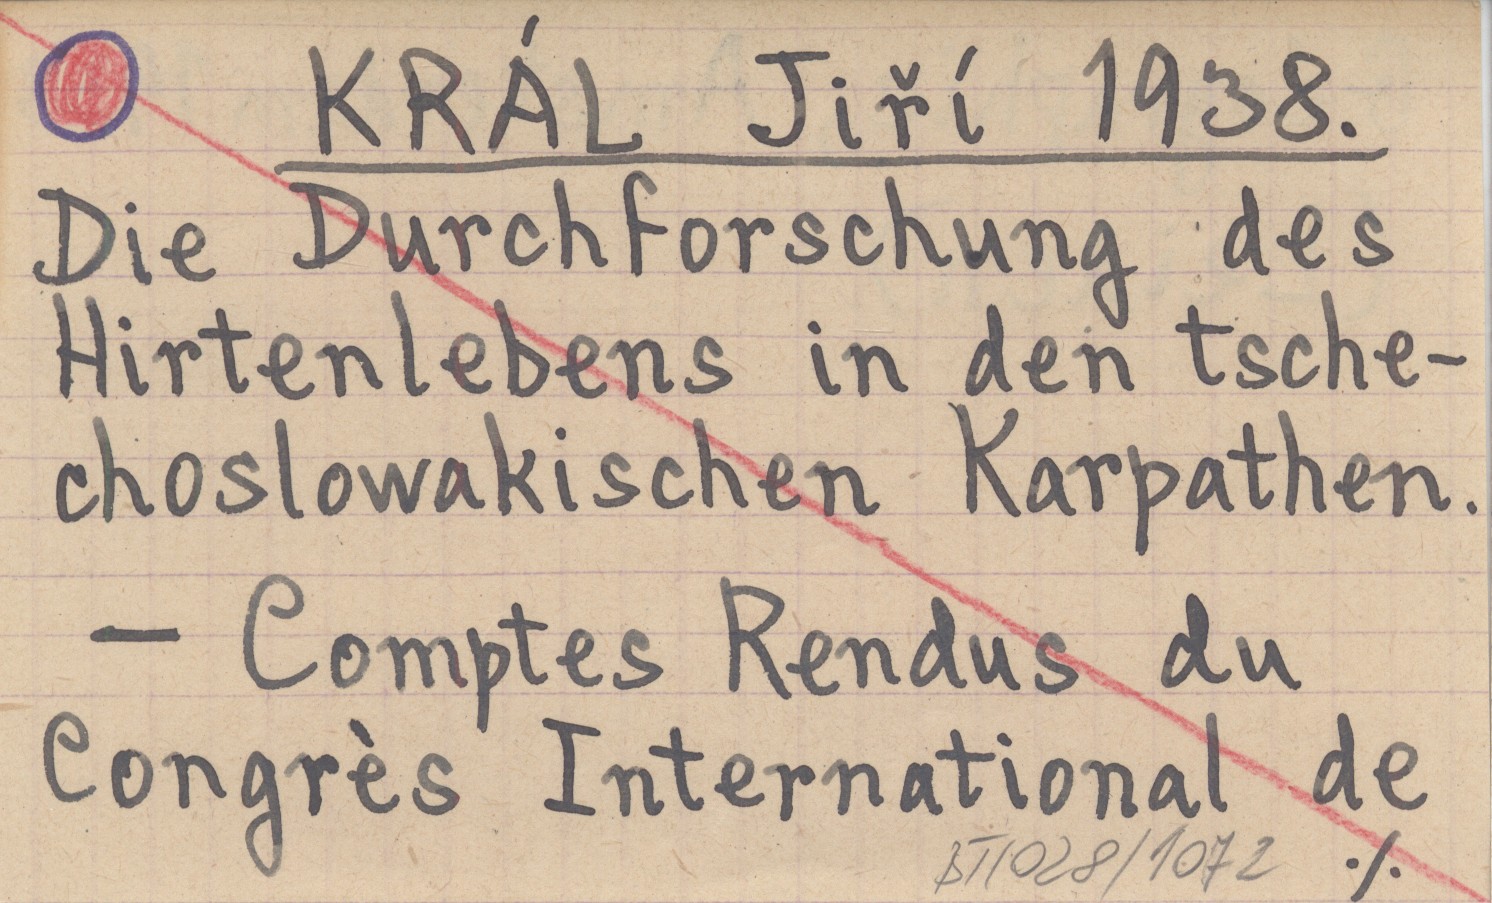 KRÁL Jiří 1938.
Die Durchforschung des
Hirtenlebens in den tsche-
choslowakischen Karpathen.
— Comptes Rendus du
Congrès International de
BTI028/1072 ./.